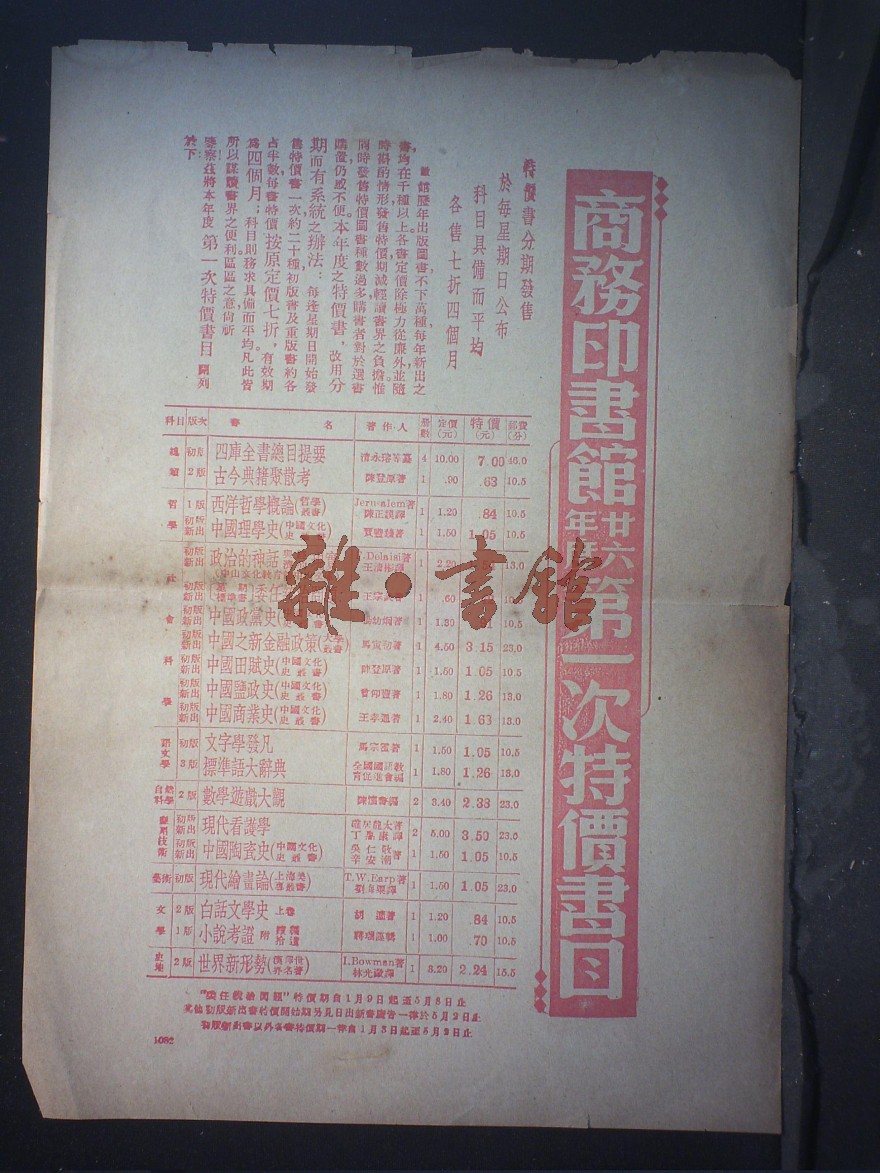 商務印書館廿六年度第一次特價書目
特價書分期發售
於每星期日公布
科目具備而平均
各售七折四個月
敝館歷年出版圖書不下萬種每年新出之
書均在千種以上各書定價除極力從廉外並隨
時斟酌情形發售特價期減輕讀書界之負擔惟
同時發售特價圖書種數過多購書者對於選書
購置仍感不便本年度之特價書，改用分
期而有系統之辦法：每逢星期日開始發
售特價書一次約二十種初版書及重版書約各
占半數每書特價按原定價七折，有效期
爲四個月；科目則務求具備而平均凡此皆
所以謀讀書界之便利區區之意尚祈
鑒察茲將本年度第一次特價書目 開列
於下
科目 版次 書名 著作人 冊數 定價(元) 特價(元) 郵費(分)
總類 初版 四庫全書總目提要 清永瑢等纂 4 10.00 7.00 46.0
2版 古今典籍聚散考 陳登原著 1 .90 .63 10.5
哲學 1版 西洋哲學概論(哲學叢書) Jerusalem著 陳正謨譯 1 1.20 .84 10.5
初版新出 中國理學史(中國文化史叢書) 賈豐臻著 1 1.50 1.05 10.5
社會科學 初版新出 政治的神話 Delaisi著 2.20 13.0
初版新出 委任 1 .60 10.5
初版新出 中國政黨史 楊幼炯著 1 1.30 10.5
初版新出 中國之新金融政策(大學叢書) 馬寅初著 4.50 3.15 23.0
初版新出 中國田賦史(中國文化史叢書) 陳登原著 1 1.50 1.05 10.5
初版新出 中國鹽政史(中國文化史叢書) 曾仰豐著 1 1.80 1.26 13.0
初版新出 中國商業史(中國文化史叢書) 王孝通著 1 2.40 1.63 13.0
語文學 初版 文字學發凡 馬宗霍著 1 1.50 1.05 10.5
3版 標準語大辭典 全國國語教育促進會編 1 1.80 1.26 13.0
自然科學 2版 數學遊戲大觀 陳懷書編 2 3.40 2.38 23.0
應用技術 初版新出 現代看護學 2 5.00 3.50 23.0
初版新出 中國陶瓷史(中國文化史叢書) 吳仁敬 辛安潮著 1 1.50 1.05 10.5
藝術 初版 現代繪畫論(上海美專叢書) T.W.Earp著 劉海粟譯 1 1.50 1.05 23.0
文學 2版 白話文學史 上卷 胡適著 1 1.20 .84 10.5
1版 小說考證 附續編拾遺 蔣瑞藻輯 1 1.00 .70 10.5
史地 2版 世界新形勢(漢譯世界名著) I.Bowman著 林光澂譯 1 3.20 2.24 15.5
"委任統治問題"特價期自1月9日起至5月8日止
其他初版新出書特價開始期另見日出新書廣告一律於5月2日止
初版新出書以外各書特價期一律自1月3日起至5月2日止
1092
雜·書館